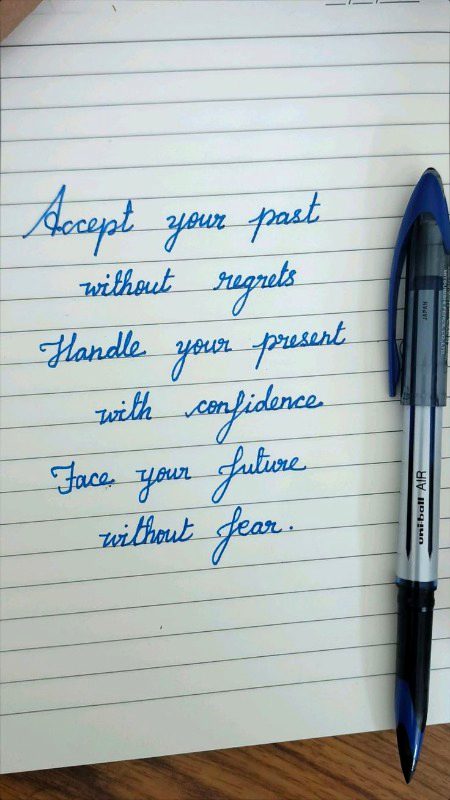 Accept your past
without regrets
Handle your present
with confidence
Face your future
without fear.
JAPAN
uniball AIR